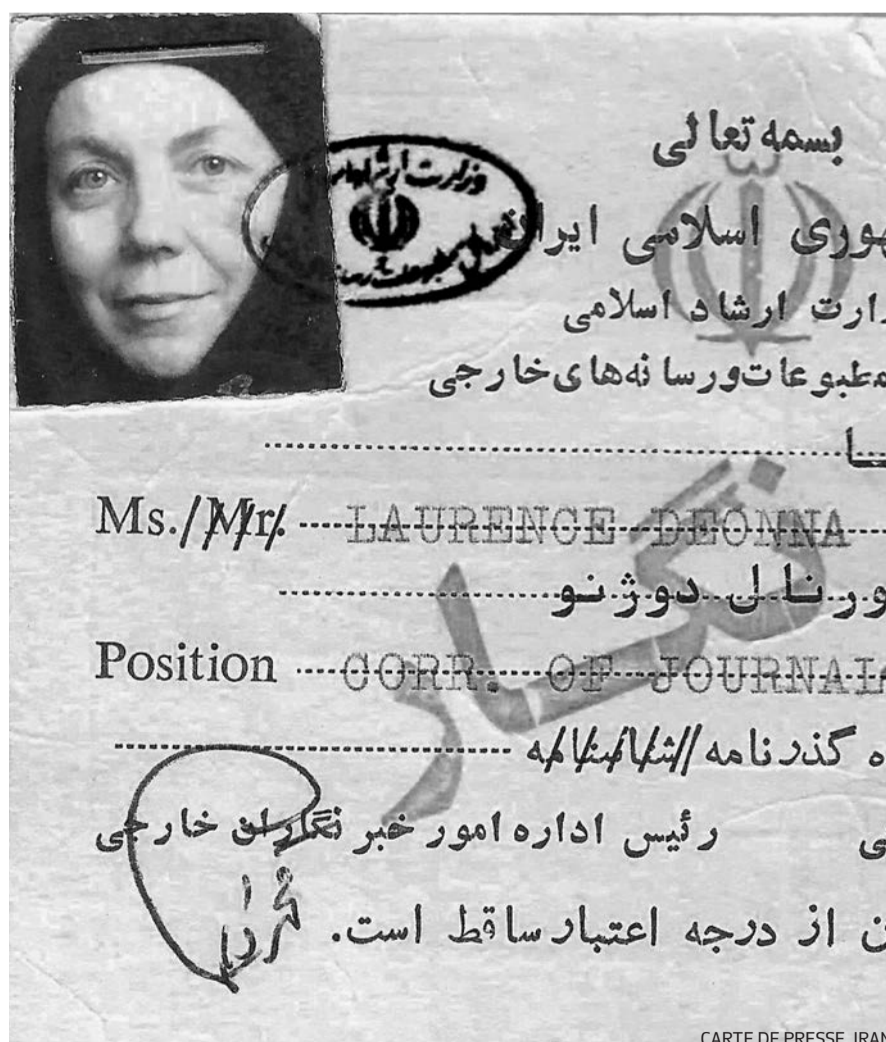 بسمه تعالی
هوری اسلامی ایران
ارت ارشاد اسلامی
مطبوعات و رسانه‌های خارجی
Ms./Mr. LAURENCE DEONNA
ورنال دوژنو
Position CORR. OF JOURNAL
ه گذرنامه/شناسنامه
ی رئیس اداره امور خبرنگاران خارجی
ن از درجه اعتبار ساقط است.
وزارت ارشاد
نگار
CARTE DE PRESSE, IRAN